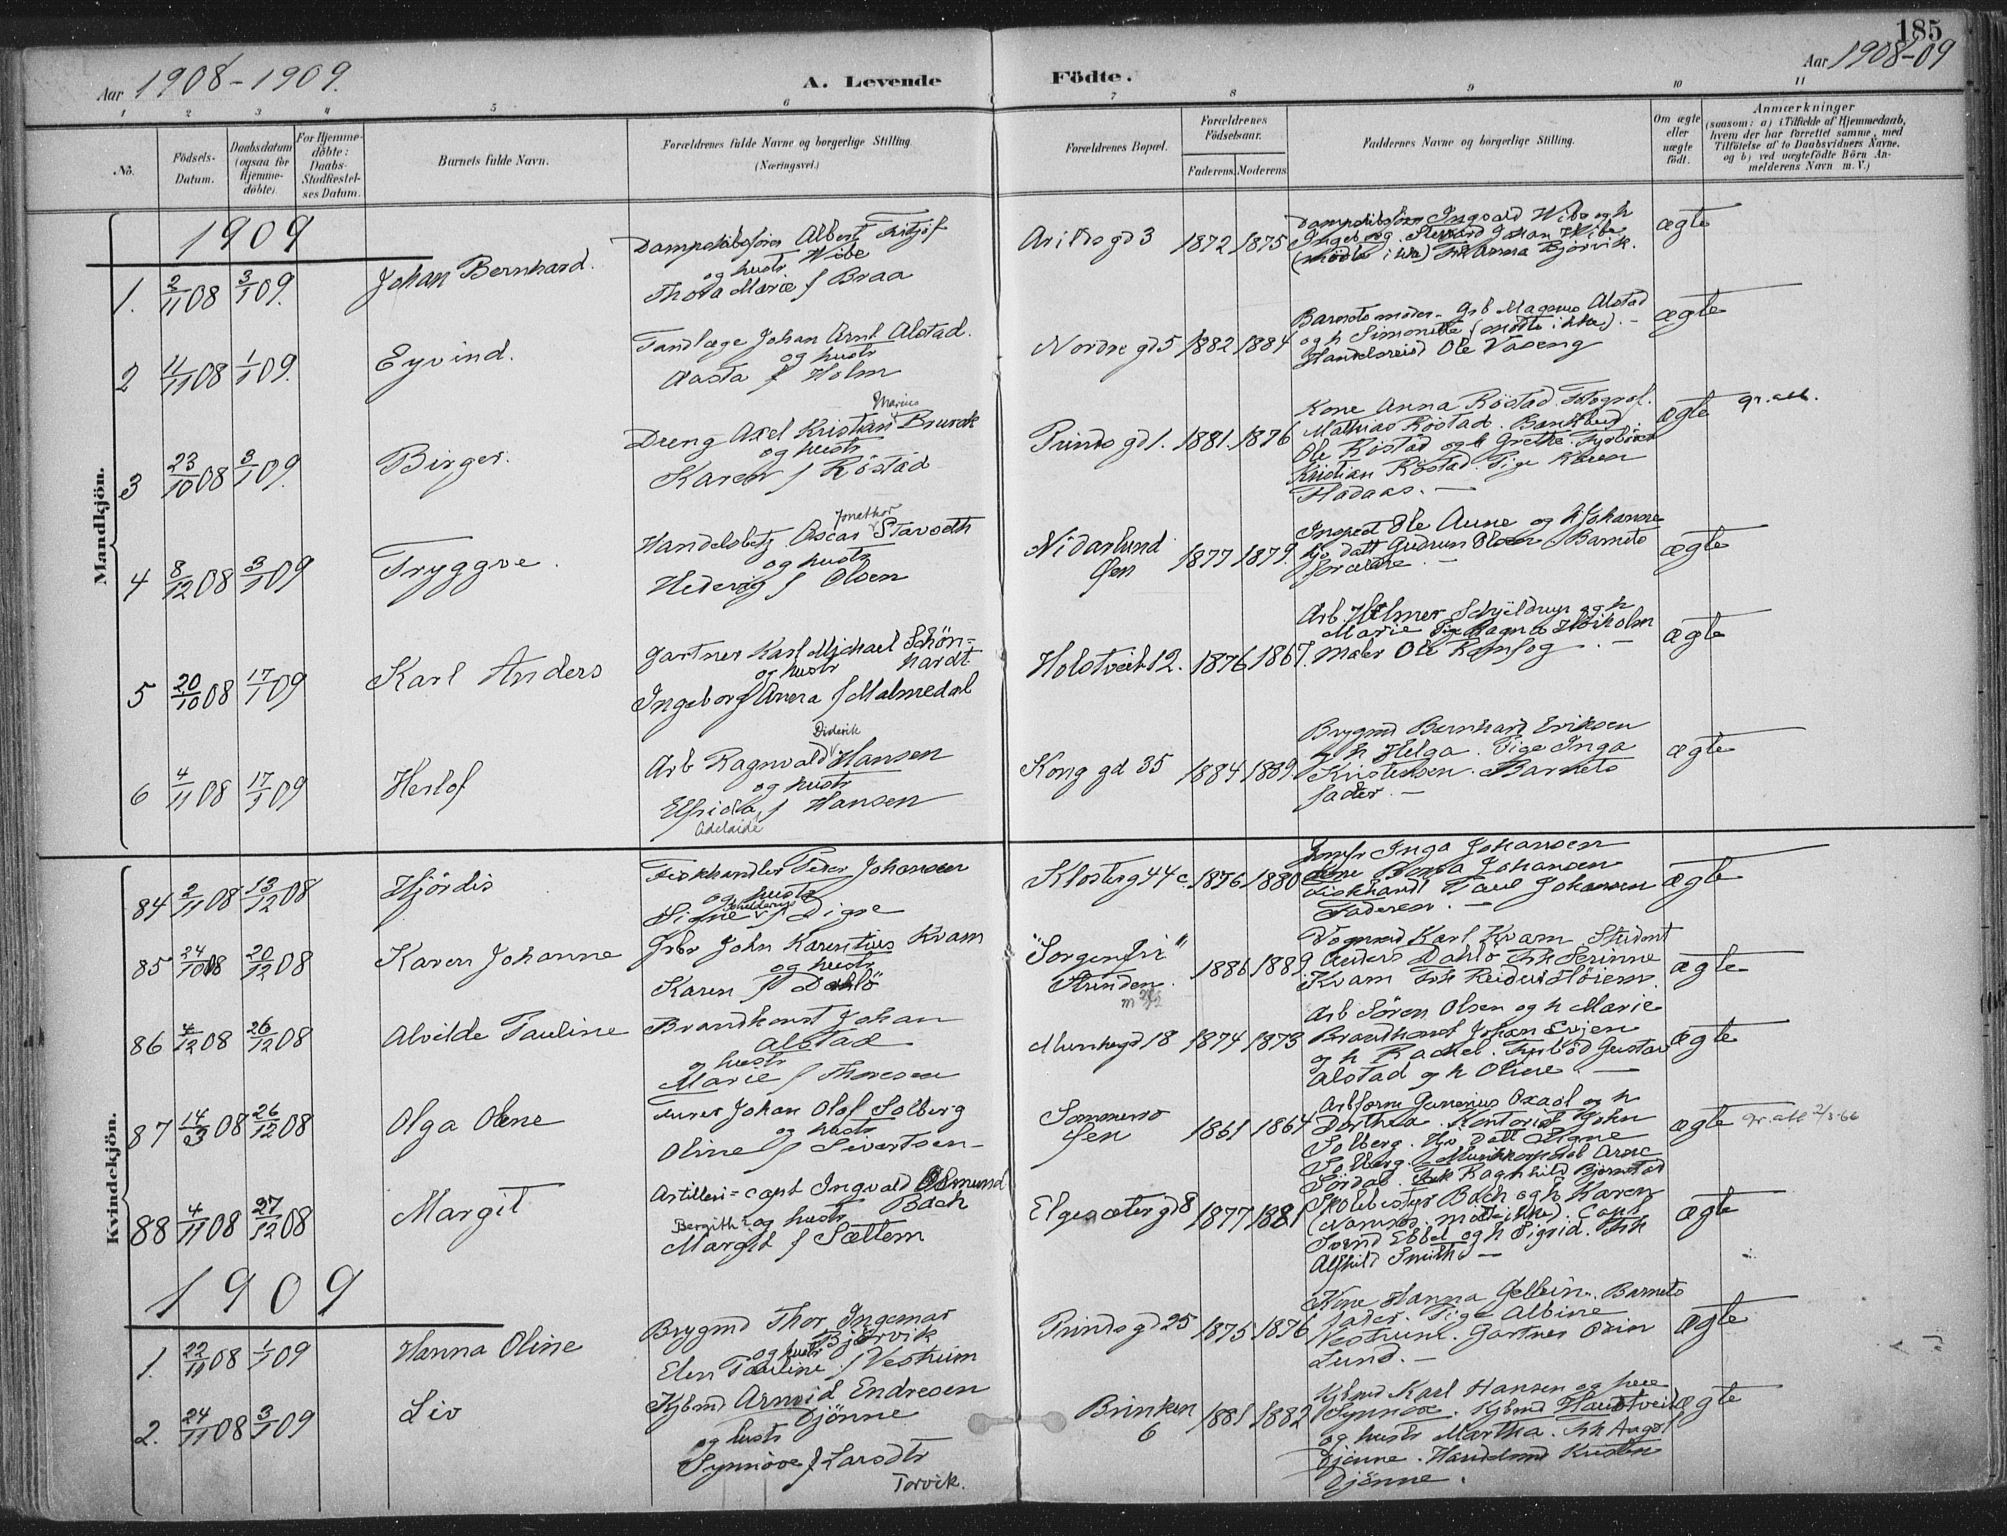 185
Aar 1908-1909.
A. Levende Födte.
Aar 1908-09
1 2 3 4 5 6 7 8 9 10 11
No.
Födsels-Datum.
Daabsdatum (ogsaa for Hjemme-döbte).
For Hjemme-döbte: Daabs-Stadfæstelses Datum.
Barnets fulde Navn.
Forældrenes fulde Navne og borgerlige Stilling. (Næringsvei.)
Forældrenes Bopæl.
Forældrenes Födselsaar.
Faderens. Moderens.
Faddernes Navne og borgerlige Stilling.
Om ægte eller uægte födt.
Anmærkninger
(saasom: a) i Tilfælde af Hjemmedaab,
hvem der har forrettet samme, med
Tilföielse af to Daabsvidners Navne.
og b) ved uægtefödte Börn An-
melderens Navn m. V.)
Mandkjön.
1909
1. 2/11 08 3/1 09. Johan Bernhard.
Dampskibsfører Albert Fritjof
Wibe
og hustr
Thora Marie f Braa
Arildsgd 3 1872 1875
Dampskibsfører Ingvald Wibe og h
Ingeborg. Steward Johan Wibe
(mødte i ) Frk Anna Bjørvik.
ægte
2 11/11 08 1/1 09. Eyvind.
Tandlæge Johan Arnt Alstad.
og hustr
Aasta f Holm
Nordre gd 5 1882 1884
Barnets moder. Grb Magnus Alstad
og h Simonette (mødte ikke). –
Handelsreisd Ole Vaseng
ægte
3 23/10 08 3/1 09. Birger.
Marius
Dreng Axel Kristian Brurok
og hustr
Karen f Röstad
Prinds gd 1. 1881. 1876
Kone Anna Röstad. Fotograf.
Mathias Röstad. Bankbud
Ole Röstad og h Grethe. Fyrböder
Kristian Röstad. Pige Karen
Fladaas. –
ægte gr. att.
4 8/12 08 3/1 09 Tryggve.
Jonathor
Handelsbetj Oscar Stavseth
og hustr
Hedevig f Olsen
Nidarlund
Øen
1877 1879.
Inspect Ole Aune og h Johanne
hjv datt Gudrun Olsen Barnets
forældre. –
ægte
5 20/10 08 17/1 09 Karl Anders
Gartner Karl Michael Schön=
hardt
og hustr
Ingeborg Anna f Malmedal
Holstveit 12. 1876 1867.
Arb Helmer Schjeldrup og h
Marie Pige Magna Høiholm
Maler Ole Ramfog. –
ægte
6 4/11 08 17/1 09 Herlof
Diderik
Arb Ragnvald Hansen
og hustr
Elfrida f Hansen
Adelaide
Kong gd 35 1884 1889.
Brygmd Bernhard Eriksen
og h Helga. Pige Inga
Kristensen. Barnets
fader. –
ægte
Kvindekjön.
84 2/11 08 13/12 08 Hjördis
Fiskhandler Peter Johansen
og hustr
Signe f Digre
Klosterg 44 c. 1876 1880
Jomfr Inga Johansen
Johansen
Fiskhandl Paul Johansen
Faderen. –
ægte
85 24/10 08 20/12 08 Karen Johanne
Grbr John Karentius Kvam
og hustr
Karen f Dahlö
"Sorgenfri"
Strinden.
1886 1889
Vognmd Karl Kvam Student
Anders Dahlö Frk Serinne
Kvam Frk Reidun Höiem.
ægte
86 4/12 08 26/12 08 Alvilde Pauline
Brandkonst Johan
Alstad
og hustr
Marie f Thoresen
Munkegd 18 1874 1873
Arb Sören Olsen og h Marie
Brandkonst Johan Evjen
og h Rachel. Fyrböd Gustav
Alstad og h Oline –
ægte
87 14/3 08 26/12 08 Olga Olene
Johan Olof Solberg
og hustr
Oline f Sivertsen –
Øen
1861 1864
Arbform Gunerius Oxaal og h
Dorthea. Kontorist John
Solberg. Hjv datt Signe
Solberg. Arne
Sördal. Frk Raghhild Bjørnstad
ægte gr. att 2/5-66
88 4/11 08 27/12 08 Margit
Artilleri=capt Ingvald Asmund
Bach
Bergith og hustr
Margit f Sættem
Elgesæter gd 8 1877 1881
Skolebestyr Bach og h Karen
(Namsos. mödte ikke). Capt
Svend Ebbel og h Sigrid. Frk
Alfhild Smith –
ægte
1909
1. 22/11 08 1/1 09 Hanna Oline
Brygmd Thor Ingemar
Bjørvik
og hustr
Elen Pauline f Vestrum
Prinds gd 25 1875 1876
Kone Hanna Gellein. Barnets
fader. Pige Albine
Vestrum. Gartner Odin
Lund. –
ægte
2. 24/11 08 3/1 09 Liv
Kjbmd Arnvid Endresen
Djönne
og hustr
Synnöve f Larsdtr
Torvik.
Brinken
6
1881 1882
Kjbmd Karl Hansen og hu
Synnöve. Kjbmd Haustveit
og hustr Martha. Frk Aagot
Djönne. Handelsmd Kristen
Djönne.
ægte